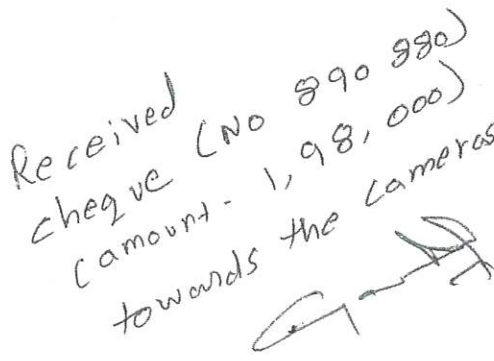 Received
cheque (No 890 880)
(amount - 1,98,000)
towards the cameras